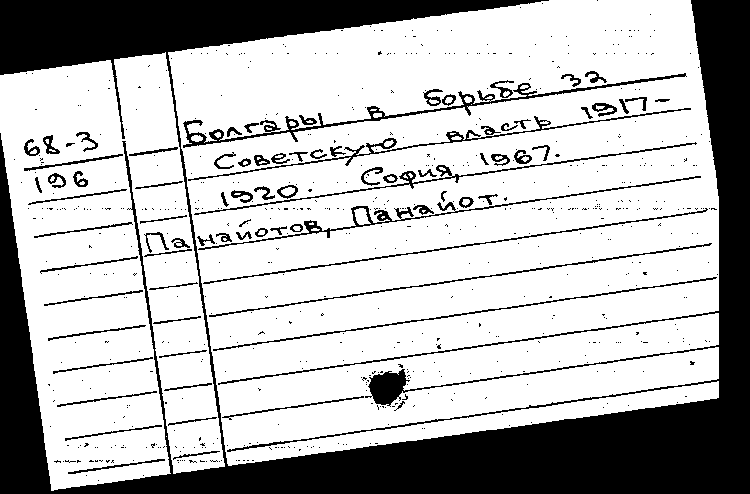 Болгары в борьбе за
68-3
Советскую власть 1917-
196
1920. София, 1967.
Панайотов, Панайот.